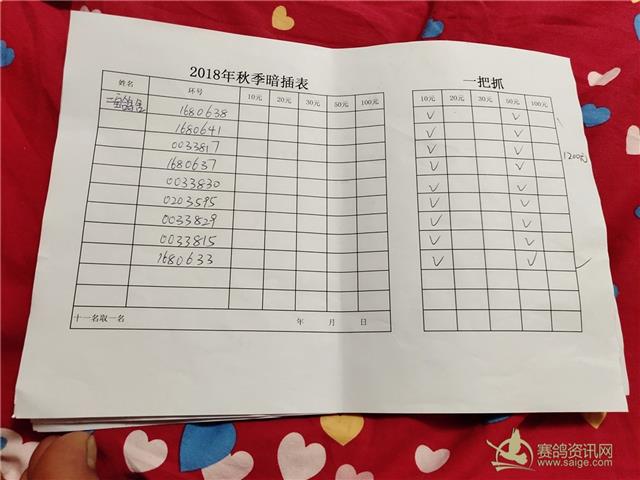 2018年秋季暗插表 一把抓
姓名 环号 10元 20元 30元 50元 100元 10元 20元 30元 50元 100元
1680638 √ √
1680641 √ √
0033817 √ √
1680637 √ √ 1200元
0033830 √ √
0203595 √ √
0033829 √ √
0033815 √ √
1680633 √ √
十一名取一名 年 月 日
赛鸽资讯网
www.saige.com